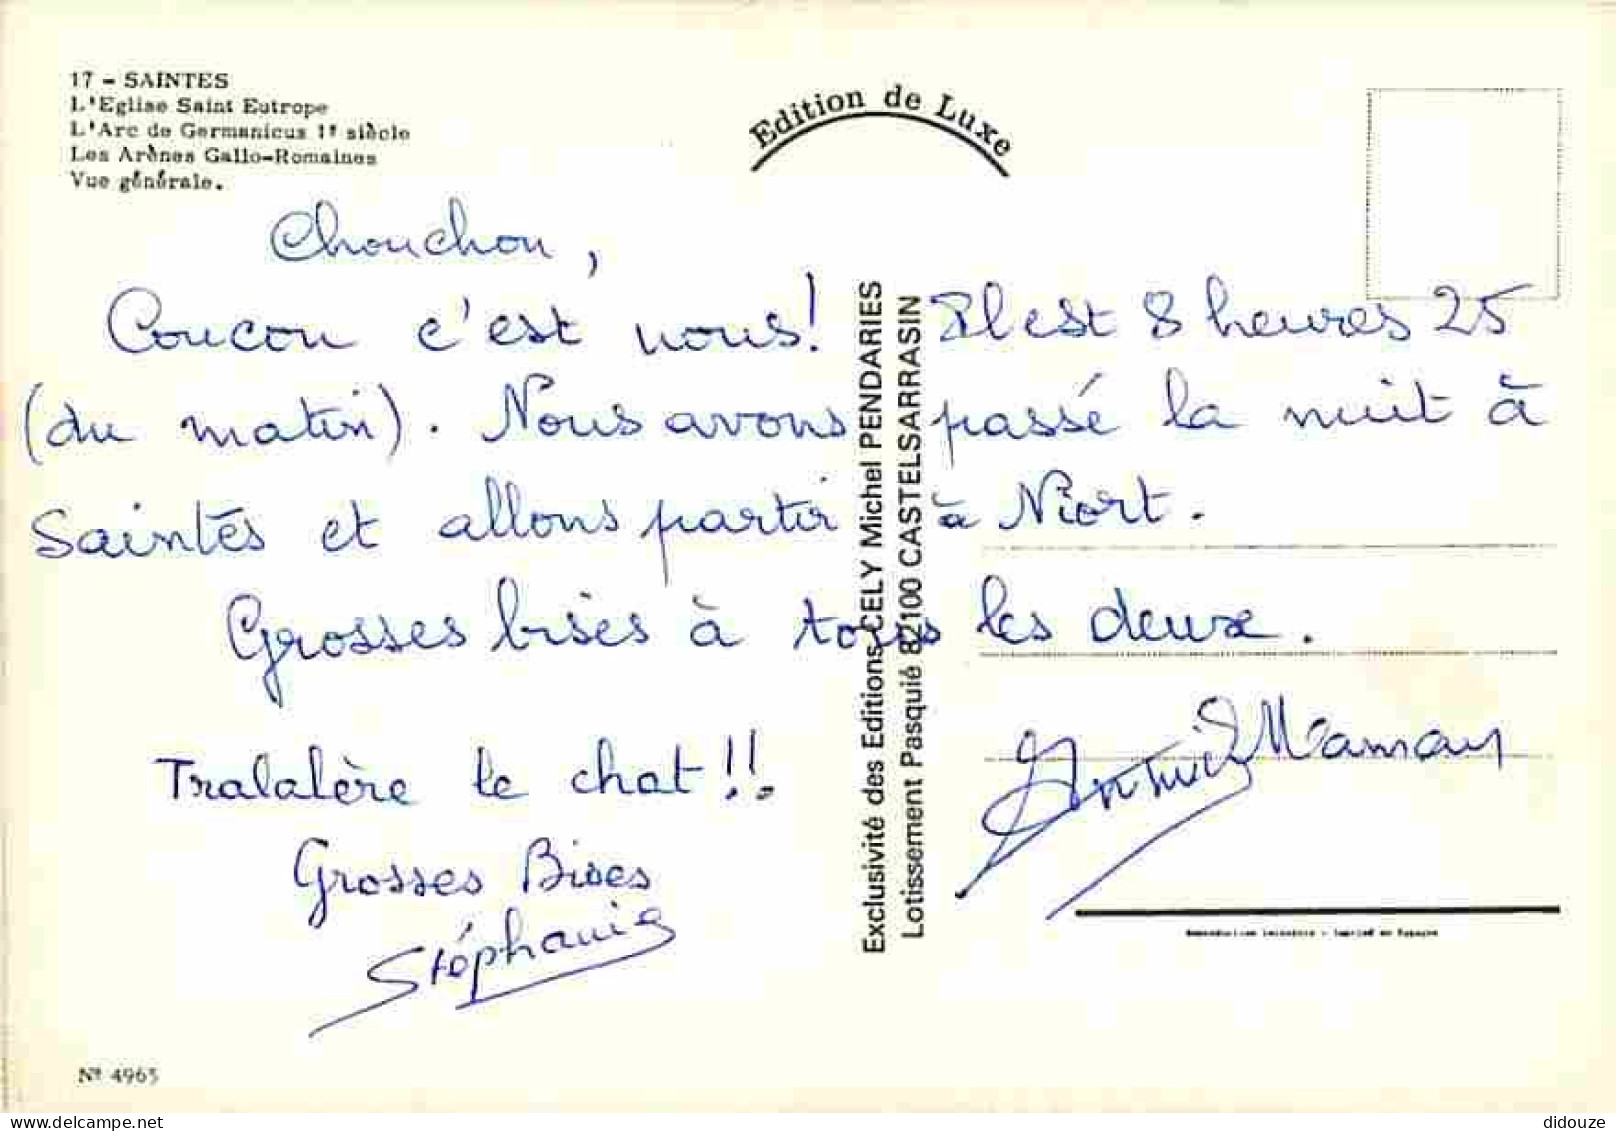 17 - SAINTES
L'Eglise Saint Eutrope
L'Arc de Germanicus 1e siècle
Les Arènes Gallo-Romaines
Vue générale.
Edition de Luxe
Chouchou,
Coucou c'est nous! Il est 8 heures 25
(du matin). Nous avons passé la nuit à
Saintes et allons partir à Niort.
Grosses bises à tous les deux.
Maman
Tralalère le chat!!
Grosses Bises
Stéphanie
Exclusivité des Editions CELY Michel PENDARIES
Lotissement Pasquié 82100 CASTELSARRASIN
Reproduction interdite - Imprimé en Espagne
Nº 4965
didouze